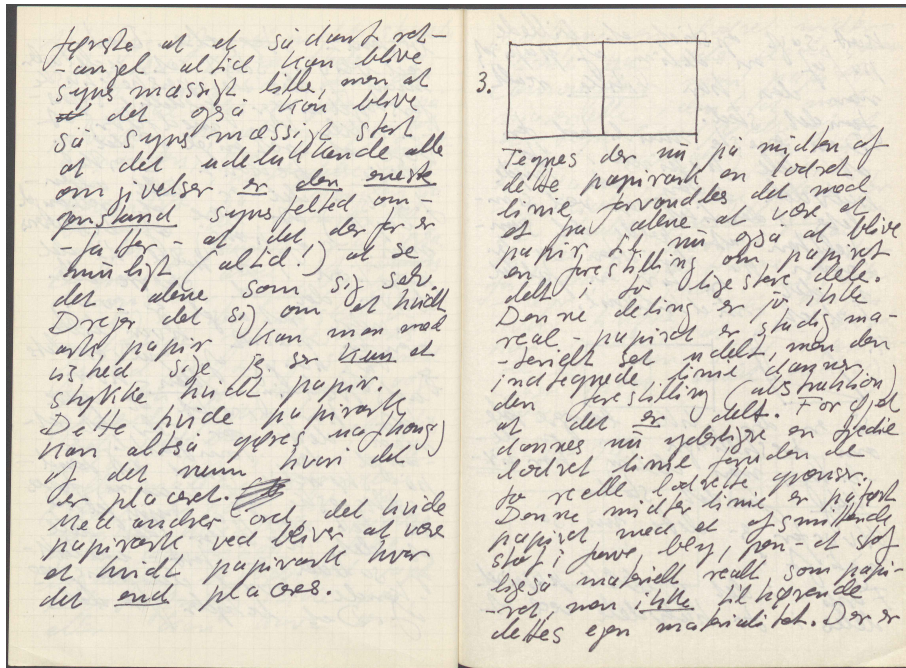 første at et sådant rekt-
-angel altid kan blive
synsmæssigt lille, men at
det også kan blive
så synsmæssigt stort
at det udelukkende alle
omgivelser er den eneste
genstand synsfeltet om-
-fatter - at det derfor er
muligt (altid!) at se
det alene som sig selv.
Drejer det sig om et hvidt
ark papir kan man med
vished sige jeg ser kun et
stykke hvidt papir.
Dette hvide papirark
kan altså gøres uafhængigt
af det rum hvori det
er placeret.
Med andre ord, det hvide
papirark ved bliver at være
et hvidt papirark hvor
det end placeres.
3.
Tegnes der nu på midten af
dette papirark en lodret
linie forvandles det med
et fra alene at være et
papir til nu også at blive
en forestilling om papiret
delt i to ligestore dele.
Denne deling er jo ikke
real - papiret er stadig ma-
-terielt set udelt, men den
indtegnede linie danner
den forestilling (abstraktion)
at det er delt. For øjet
dannes nu yderligere en tredie
lodret linie foruden de
to reelle lodrette grænser.
Denne midterlinie er påført
papiret med et afsmittende
stof i farve, bly, pen et stof
ligeså materielt realt som papi-
-ret, men ikke tilhørende
dettes egen materialitet. Der er